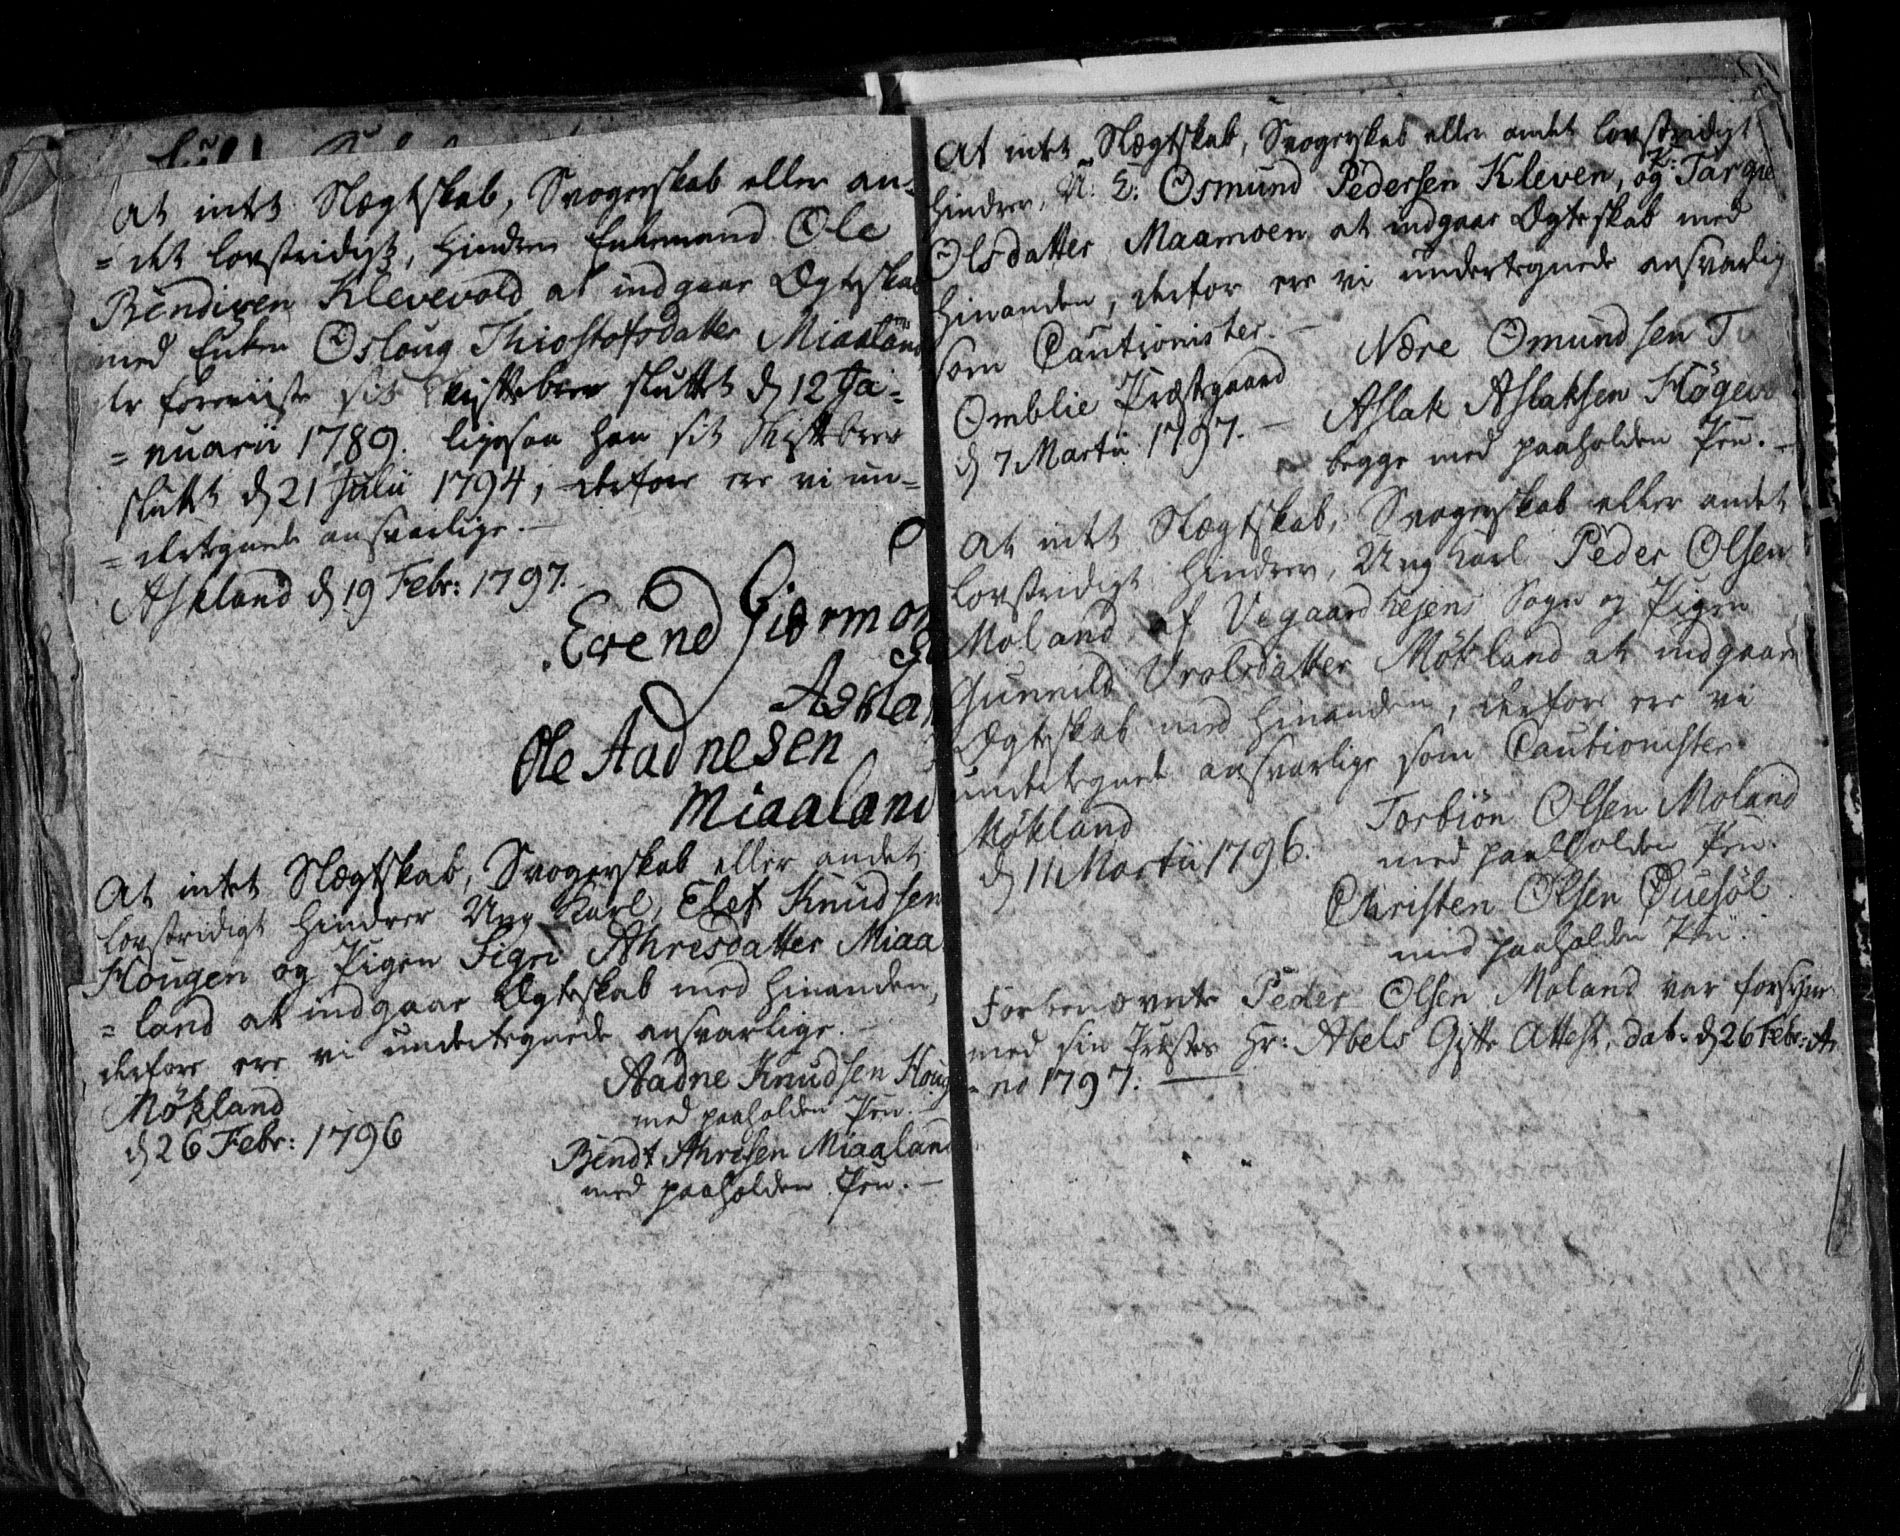 At intet Slægtskab, Svogerskab eller an=
= det lovstridigt, hindrer Enkemand Ole
Bendixen Klevevold at indgaae Ægteskab
med Enken Osloug Thiostofsdatter Miaaland
sit Skiftebrev sluttet d 12 Ja=
= nuarii 1789. ligesaa hun sit Skiftebrev
sluttet d 21 Julii 1794, derfore ere vi un=
= dertegnede ansvarlige.
Askland d 19 Febr: 1797.
Evend Giermon
Askla
Ole Aadnesen
Miaaland
At intet Slægtskab, Svogerskab eller andet
lovstridigt hindrer Ung Karl, Elef Knudsen
Hougen og Pigen Sigri Ahresdatter Miaa
= land at indgaae Ægteskab med hinanden,
derfore ere vi undertegnede ansvarlige.
Aadne Knudsen Houg
Møkland
med paaholden Pen.
d 26 Febr: 1796
Bendt Ahresen Miaaland
med paaholden Pen.
At intet Slægtskab, Svogerskab eller andet lovstridigt
hindrer, U: K: Osmund Pedersen Kleven, og P: Targie
Olsdatter Maamoen at indgaae Ægteskab med
hinanden, derfor ere vi undertegnede ansvarlig
som Cautionister.
Nære Omundsen
Omblie Præstgaard
Aslak Aslaksen Høgev
d 7 Martii 1797.
begge med paaholden Pen.
At intet Slægtskab, Svogerskab eller andet
lovstridigt hindrer, Ung Karl Peder Olsen
Moland af Vegaardshejens Sogn og Pigen
Gunnild Vrolsdatter Møkland at indgaae
Ægteskab med hinanden, derfore ere vi
undertegnede ansvarlige som Cautionister
Møkland
Torbiön Olsen Moland
d 11 Martii 1796.
med paaholden Pen.
Christen Olsen Ouesøl
med paaholden Pen.
Forbenævnte Peder Olsen Moland var forsynet
med sin Præstes Hr: Abels Gifte Attest, dat: d 26 Febr: A
= no 1797.